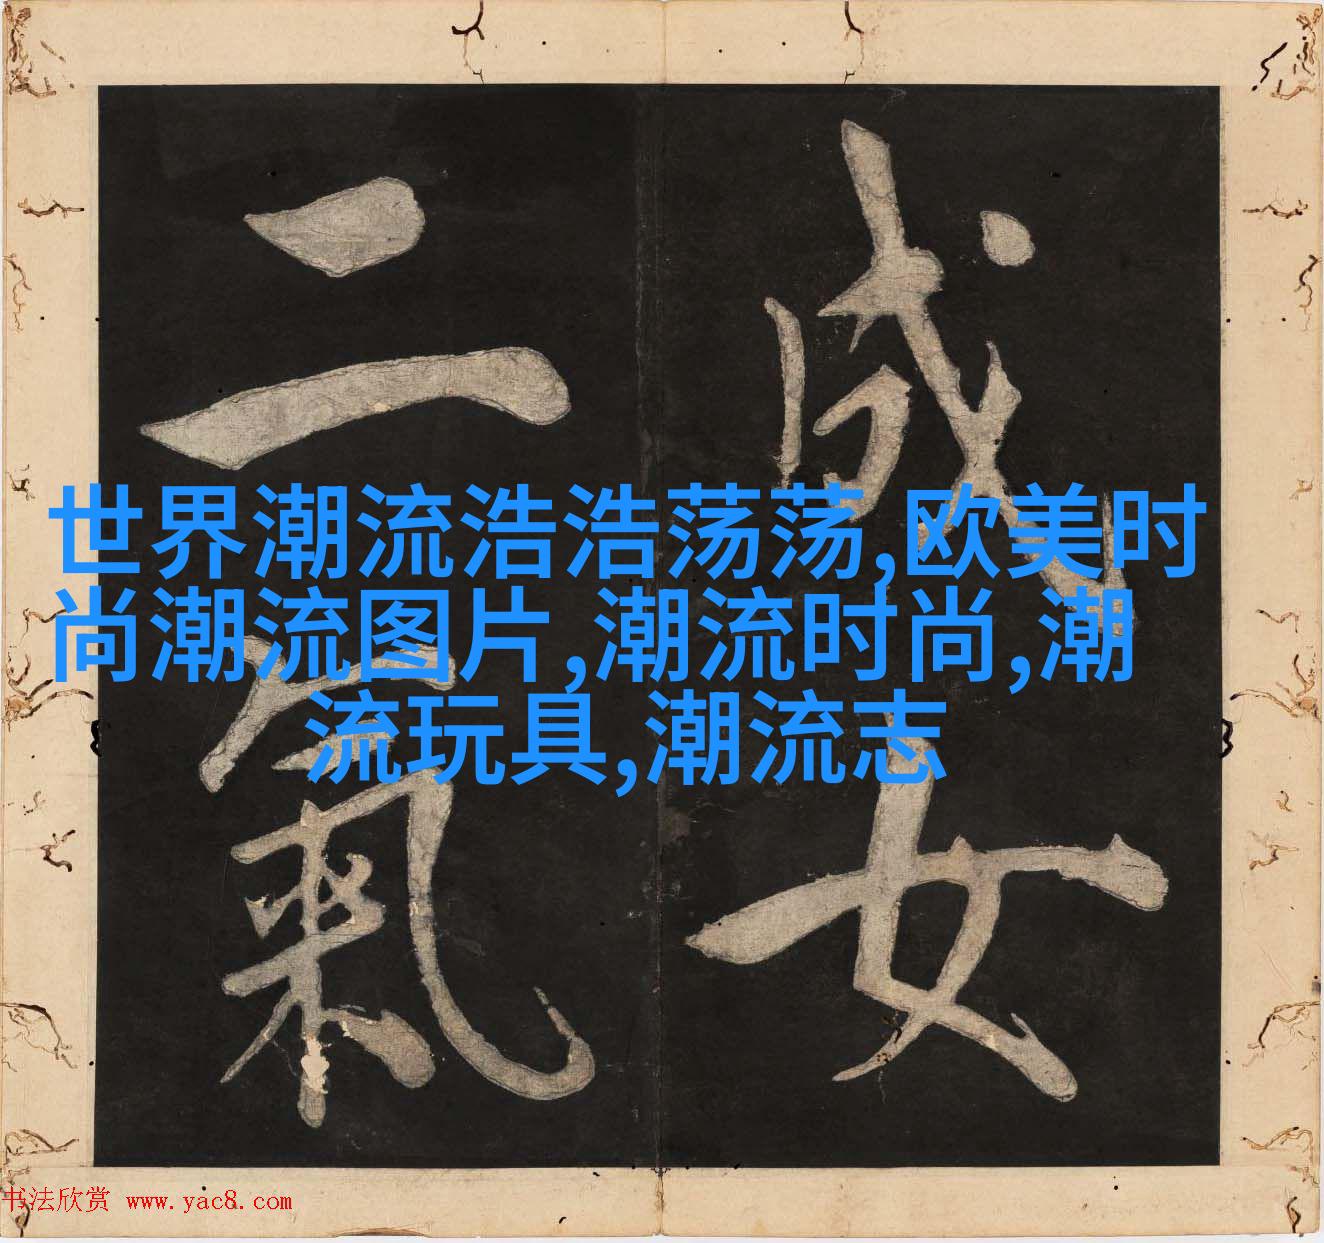 成女
二氣
世界潮流浩浩荡荡,欧美时
尚潮流图片,潮流时尚,潮
流玩具,潮流志
书法欣赏 www.yac8.com